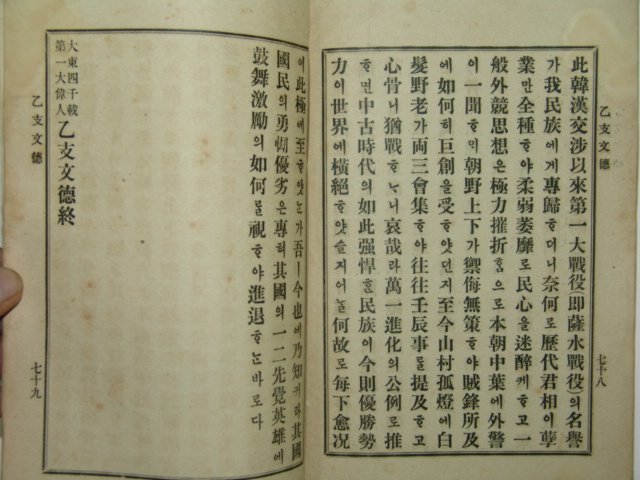 乙支文德
此韓漢交涉以來第一大戰役(即薩水戰役)의名譽
가我民族에게專歸ᄒᆞ더니奈何로歷代君相이孽
業만全種ᄒᆞ야柔弱萎靡로民心을迷醉케ᄒᆞ고一
般外競思想은極力摧折ᄒᆞᆷ으로本朝中葉에外警
이一聞ᄒᆞᄆᆡ朝野上下가禦侮無策ᄒᆞ야賊鋒所及
에如何히巨創을受ᄒᆞ얏던지至今山村孤燈에白
髮野老가両三會集ᄒᆞ야往往壬辰事ᄅᆞᆯ提及ᄒᆞ고
心骨니猶戰ᄒᆞᄂᆞ니哀哉라萬一進化의公例로推
ᄒᆞ면中古時代의如此强悍ᄒᆞᆫ民族이今則優勝勢
力이世界에橫絕ᄒᆞ얏슬지어ᄂᆞᆯ何故로每下愈况
七十八
이此極에至ᄒᆞ얏ᄂᆞᆫ가吾ㅣ今也에乃知케라其國
國民의勇㥘優劣은專혀其國의一二先覺英雄에
鼓舞激勵의如何ᄅᆞᆯ視ᄒᆞ야進退ᄒᆞᄂᆞᆫ바로다
大東四千載
第一大偉人
乙支文德終
乙支文德
七十九